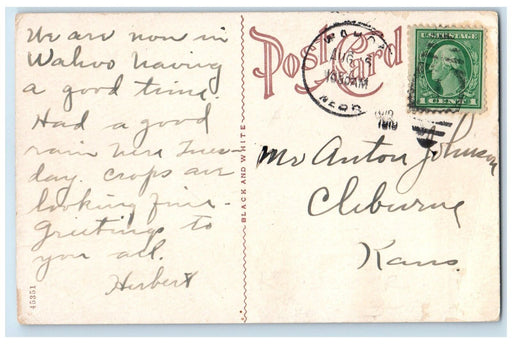 We are now in
Wahoo having
a good time.
Had a good
rain here Tues-
day. Crops are
looking fine.
Greetings to
you all.
Herbert
45351
BLACK AND WHITE
Post Card
WAHOO
AUG
10 30 AM
NEBR.
U.S. POSTAGE
1 CENT 1
Mr Anton Johnson
Cleburne
Kans